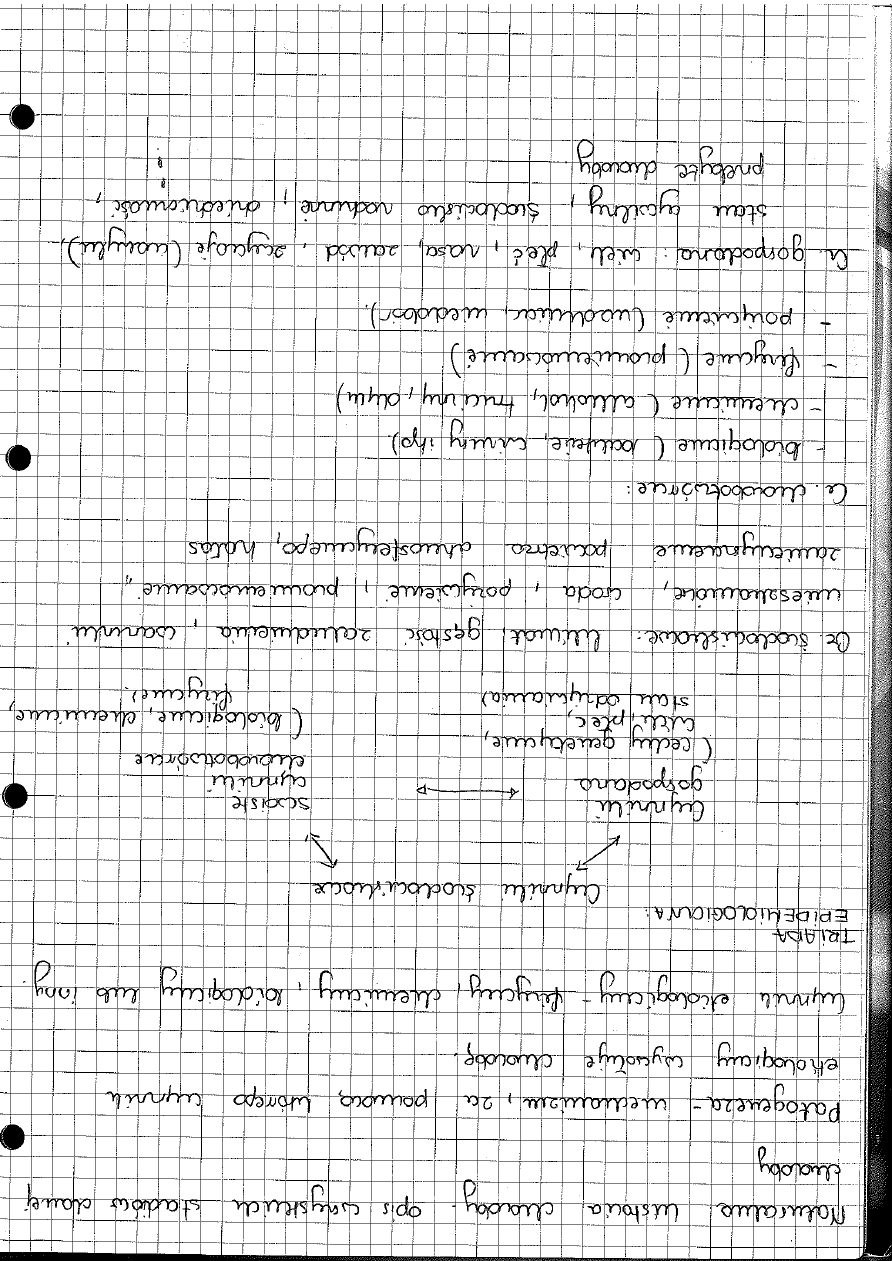 Naturalna historia choroby - opis wszystkich stadiów danej
choroby
Patogeneza - mechanizm, za pomocą którego czynnik
etiologiczny wywołuje chorobę.
Czynnik etiologiczny - fizyczny, chemiczny, biologiczny lub inny.
TRIADA
EPIDEMIOLOGICZNA:
Czynniki środowiskowe
Czynniki gospodarza
(cechy genetyczne,
wiek, płeć,
stan odżywiania)
swoiste
czynniki
chorobotwórcze
(biologiczne, chemiczne,
fizyczne).
Cz. środowiskowe: klimat, gęstość zaludnienia, warunki
mieszkaniowe, woda, pożywienie, promieniowanie,
zanieczyszczenie powietrza atmosferycznego, hałas
Cz. chorobotwórcze:
- biologiczne (bakterie, wirusy itp.)
- chemiczne (alkohol, trucizny, dym)
- fizyczne (promieniowanie)
- pożywienie (nadmiar, niedobór).
Cz. gospodarza: wiek, płeć, rasa, zawód, zwyczaje (higiena),
stan cywilny, środowisko rodzinne, dziedziczność,
przebyte choroby